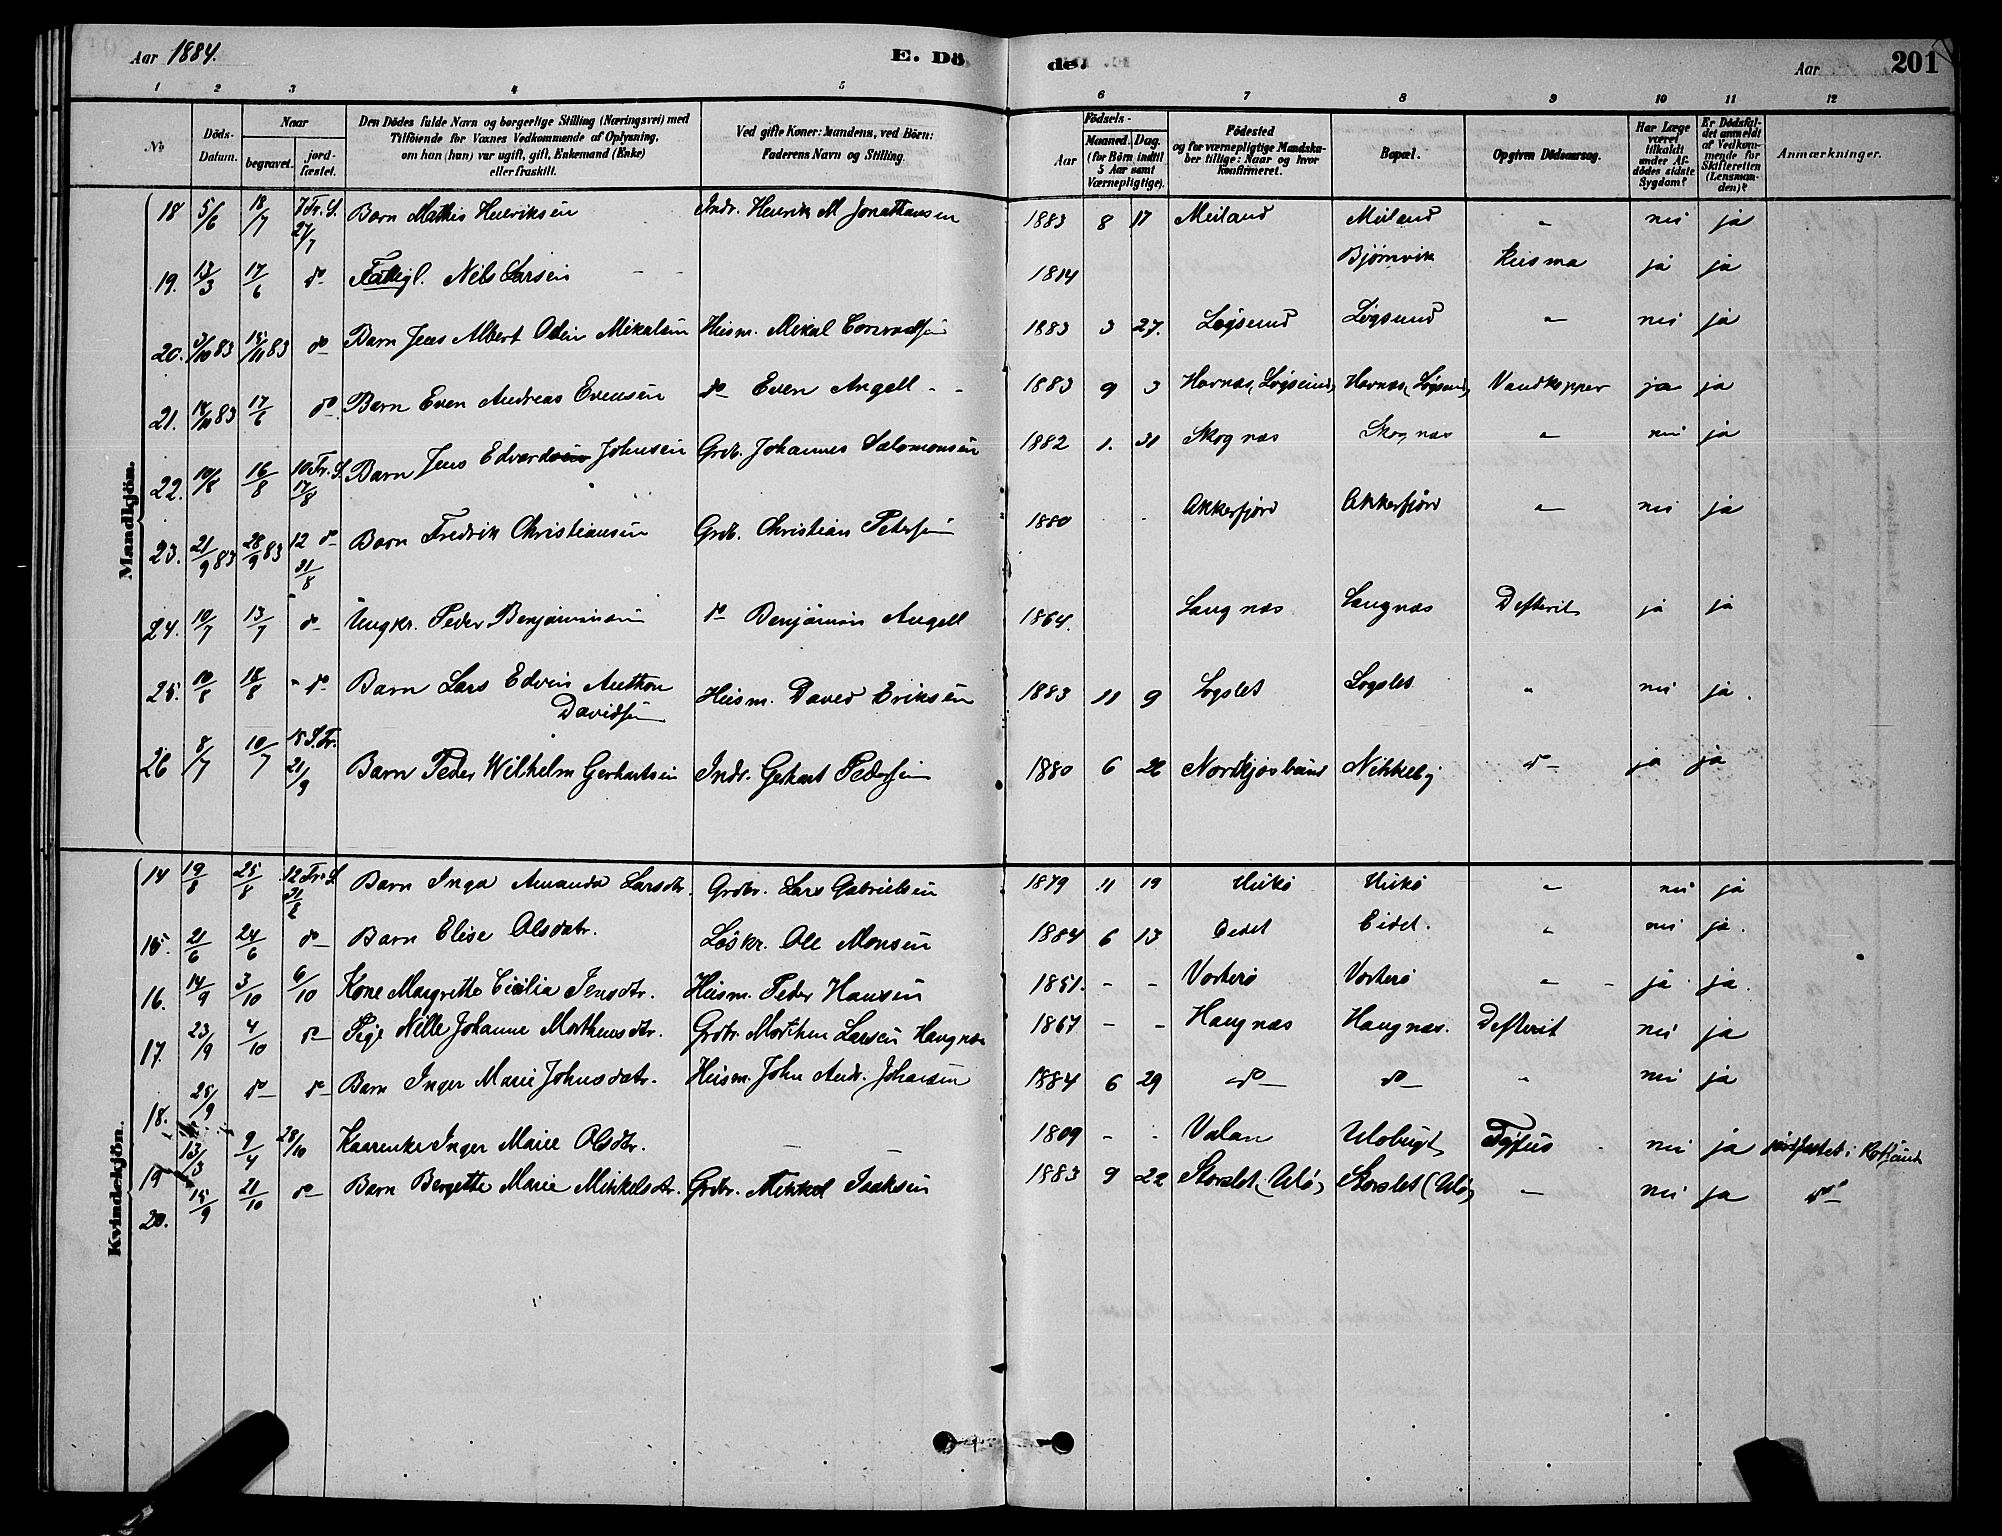 Aar 1884.
E. Dö
de.
Aar
201
1 2 3 4 5 6 7 8 9 10 11 12
No
Döds-Datum.
Naar
begravet.
jord-fæstet.
Den Dödes fulde Navn og borgerlige Stilling (Næringsvei) med
Tilföiende for Voxnes Vedkommende af Oplysning,
om han (hun) var ugift, gift, Enkemand (Enke)
eller fraskilt.
Ved gifte Koner: Mandens, ved Börn:
Faderens Navn og Stilling.
Födsels-
Aar
Maaned. Dag.
(for Börn indtil
5 Aar samt
Værnepligtige).
Födested
og for værnepligtige Mandska-
ber tillige: Naar og hvor
konfirmeret.
Bopæl.
Opgiven Dödsaarsag.
Har Læge
været
tilkaldt
under Af-
dödes sidste
Sygdom?
Er Dödsfal-
det anmeldt
af Vedkom-
mende for
Skifteretten
(Lensman-
den)?
Anmærkninger.
Mandkjön.
18 5/6 18/7 7 Tr. S. 27/7 Barn Mathis Henriksen Indr. Henrik M Jonathansen 1883 8 17 Meiland Meiland " nei ja
19. 13/3 17/6 do Fattigl. Nils Larsen 1814 Bjørnvik ja ja
20. 3/10 83 15/11 83 do Barn Jens Albert Odin Mikalsen Husm. Mikal Conradsen 1883 3 27. Løgsund Løgsund " nei ja
21. 14/10 83 17/6 do Barn Even Andreas Evensen do Even Angell - - 1883 9 3 Havnæs, (Løgsund) Havnæs, (Løgsund) Vandkopper ja ja
22. 10/8 16/8 10 Tr. S. 17/8 Barn Jens Edvard Johnsen Grdb. Johannes Salomonsen 1882 1. 31 Skognæs Skognæs " nei ja
23. 21/9 83 28/9 83 12 do 31/8 Barn Fredrik Christiansen Grdb. Christian Petersen 1880 - - Akkerfjord Akkerfjord " nei ja
24. 10/7 13/7 " do Ungkr. Peder Benjaminsen do Benjamin Angell 1864. Langnæs Langnæs Defterit ja ja
25. 10/8 18/8 " do Barn Lars Edvin Anthon
Davidsen Husm. David Eriksen 1883 11 9 Logslet Logslet " nei ja.
26 8/7 10/7 15 S. Tr. 21/9 Barn Peder Wilhelm Gerhartsen Indr. Gerhart Pedersen 1880 6 26 Nordkjosbund Nikkeby do ja ja
Kvindekjön.
14 19/8 25/8 12 Tr. S 31/8 Barn Inga Amanda Larsdtr. Grdbr. Lars Gabrielsen 1879 11 19 " nei ja
15. 21/6 24/6 do Barn Elise Olsdatr. Løskr. Ole Monsen 1884 6 13 Eidet Eidet. " nei ja.
16. 14/9 3/10 6/10 Kone Margrethe Cicilia Jensdtr. Husm. Peder Hansen 1851. - - Vorterø Vorterø " - ja ja.
17. 23/9 4/10 do Pige Nille Johanne Morthensdtr. Grdbr. Morthen Larsen Haugnæs 1867 - - Haugnæs Haugnæs. Defterit nei ja
18. 28/9 do do Barn Inger Marie Johnsdatr. Husm. John Andr. Johansen 1884 6 29 do do " nei ja
19 13/3 9/4 28/10 Inger Marie Olsdtr. - 1809 - - Valan Ulobugt Tyfus nei ja jordfæstet i Rotsund
20. 15/9 21/10 do Barn Bergette Marie Mikkelsdtr. Grdbr. Mikkel Isaksen 1883 9 22 Storslet (Ulø) Storslet (Ulø) " nei ja do